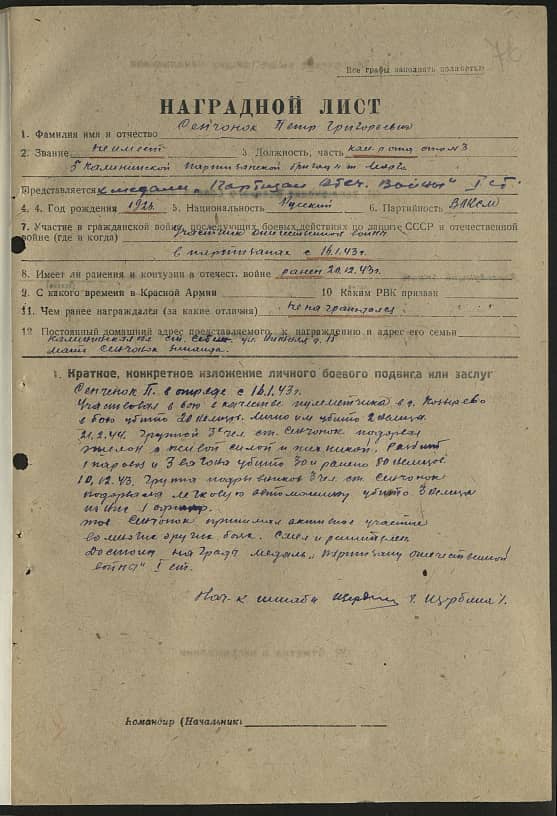 76
Все графы заполнять полностью
НАГРАДНОЙ ЛИСТ
1. Фамилия имя и отчество Сенчонок Петр Григорьевич
2. Звание не имеет 3. Должность, часть
5 Калининской партизанской бригады
Представляется к медали „Партизан Отеч. Войны" I ст.
4. 4. Год рождения 1926 5. Национальность Русский 6. Партийность ВЛКСМ
7. Участие в гражданской войне, последующих боевых действиях по защите СССР и отечественной
войне (где и когда) участник отечественной войны
в партизанах с 16.1.43г
8. Имеет ли ранения и контузии в отечест. войне ранен 20.12.43г.
9. С какого времени в Красной Армии 10 Каким РВК призван
11. Чем ранее награждался (за какие отличия) не награждался
12 Постоянный домашний адрес представляемого к награждению и адрес его семьи
Калининская ст. ул. д. 15
мать Сенчонок
1. Краткое, конкретное изложение личного боевого подвига или заслуг
Сенченок П. в отряде с 16.1.43г.
Участвовал в бою в качестве пулеметчика в д.
в бою убито 20 немцев. Лично им убито 2 немца.
21.2.44. Группой 3 чел ст. Сенчонок подорвал
эшелон с живой силой и техникой. Разбит
1 паровоз и 3 вагона убито 30 и ранено 80 немцев.
10.12.43. Группа подрывников 3 чел. ст. Сенчонок
подорвала легковую автомашину убито 3 немца
из них 1 офицер.
тов Сенчонок принимал активное участие
во многих других боях. Смел и решителен
Достоин награды медаль „партизану отечественной
войны" I ст.
Нач-к штаба Щербина
Командир (Начальник)